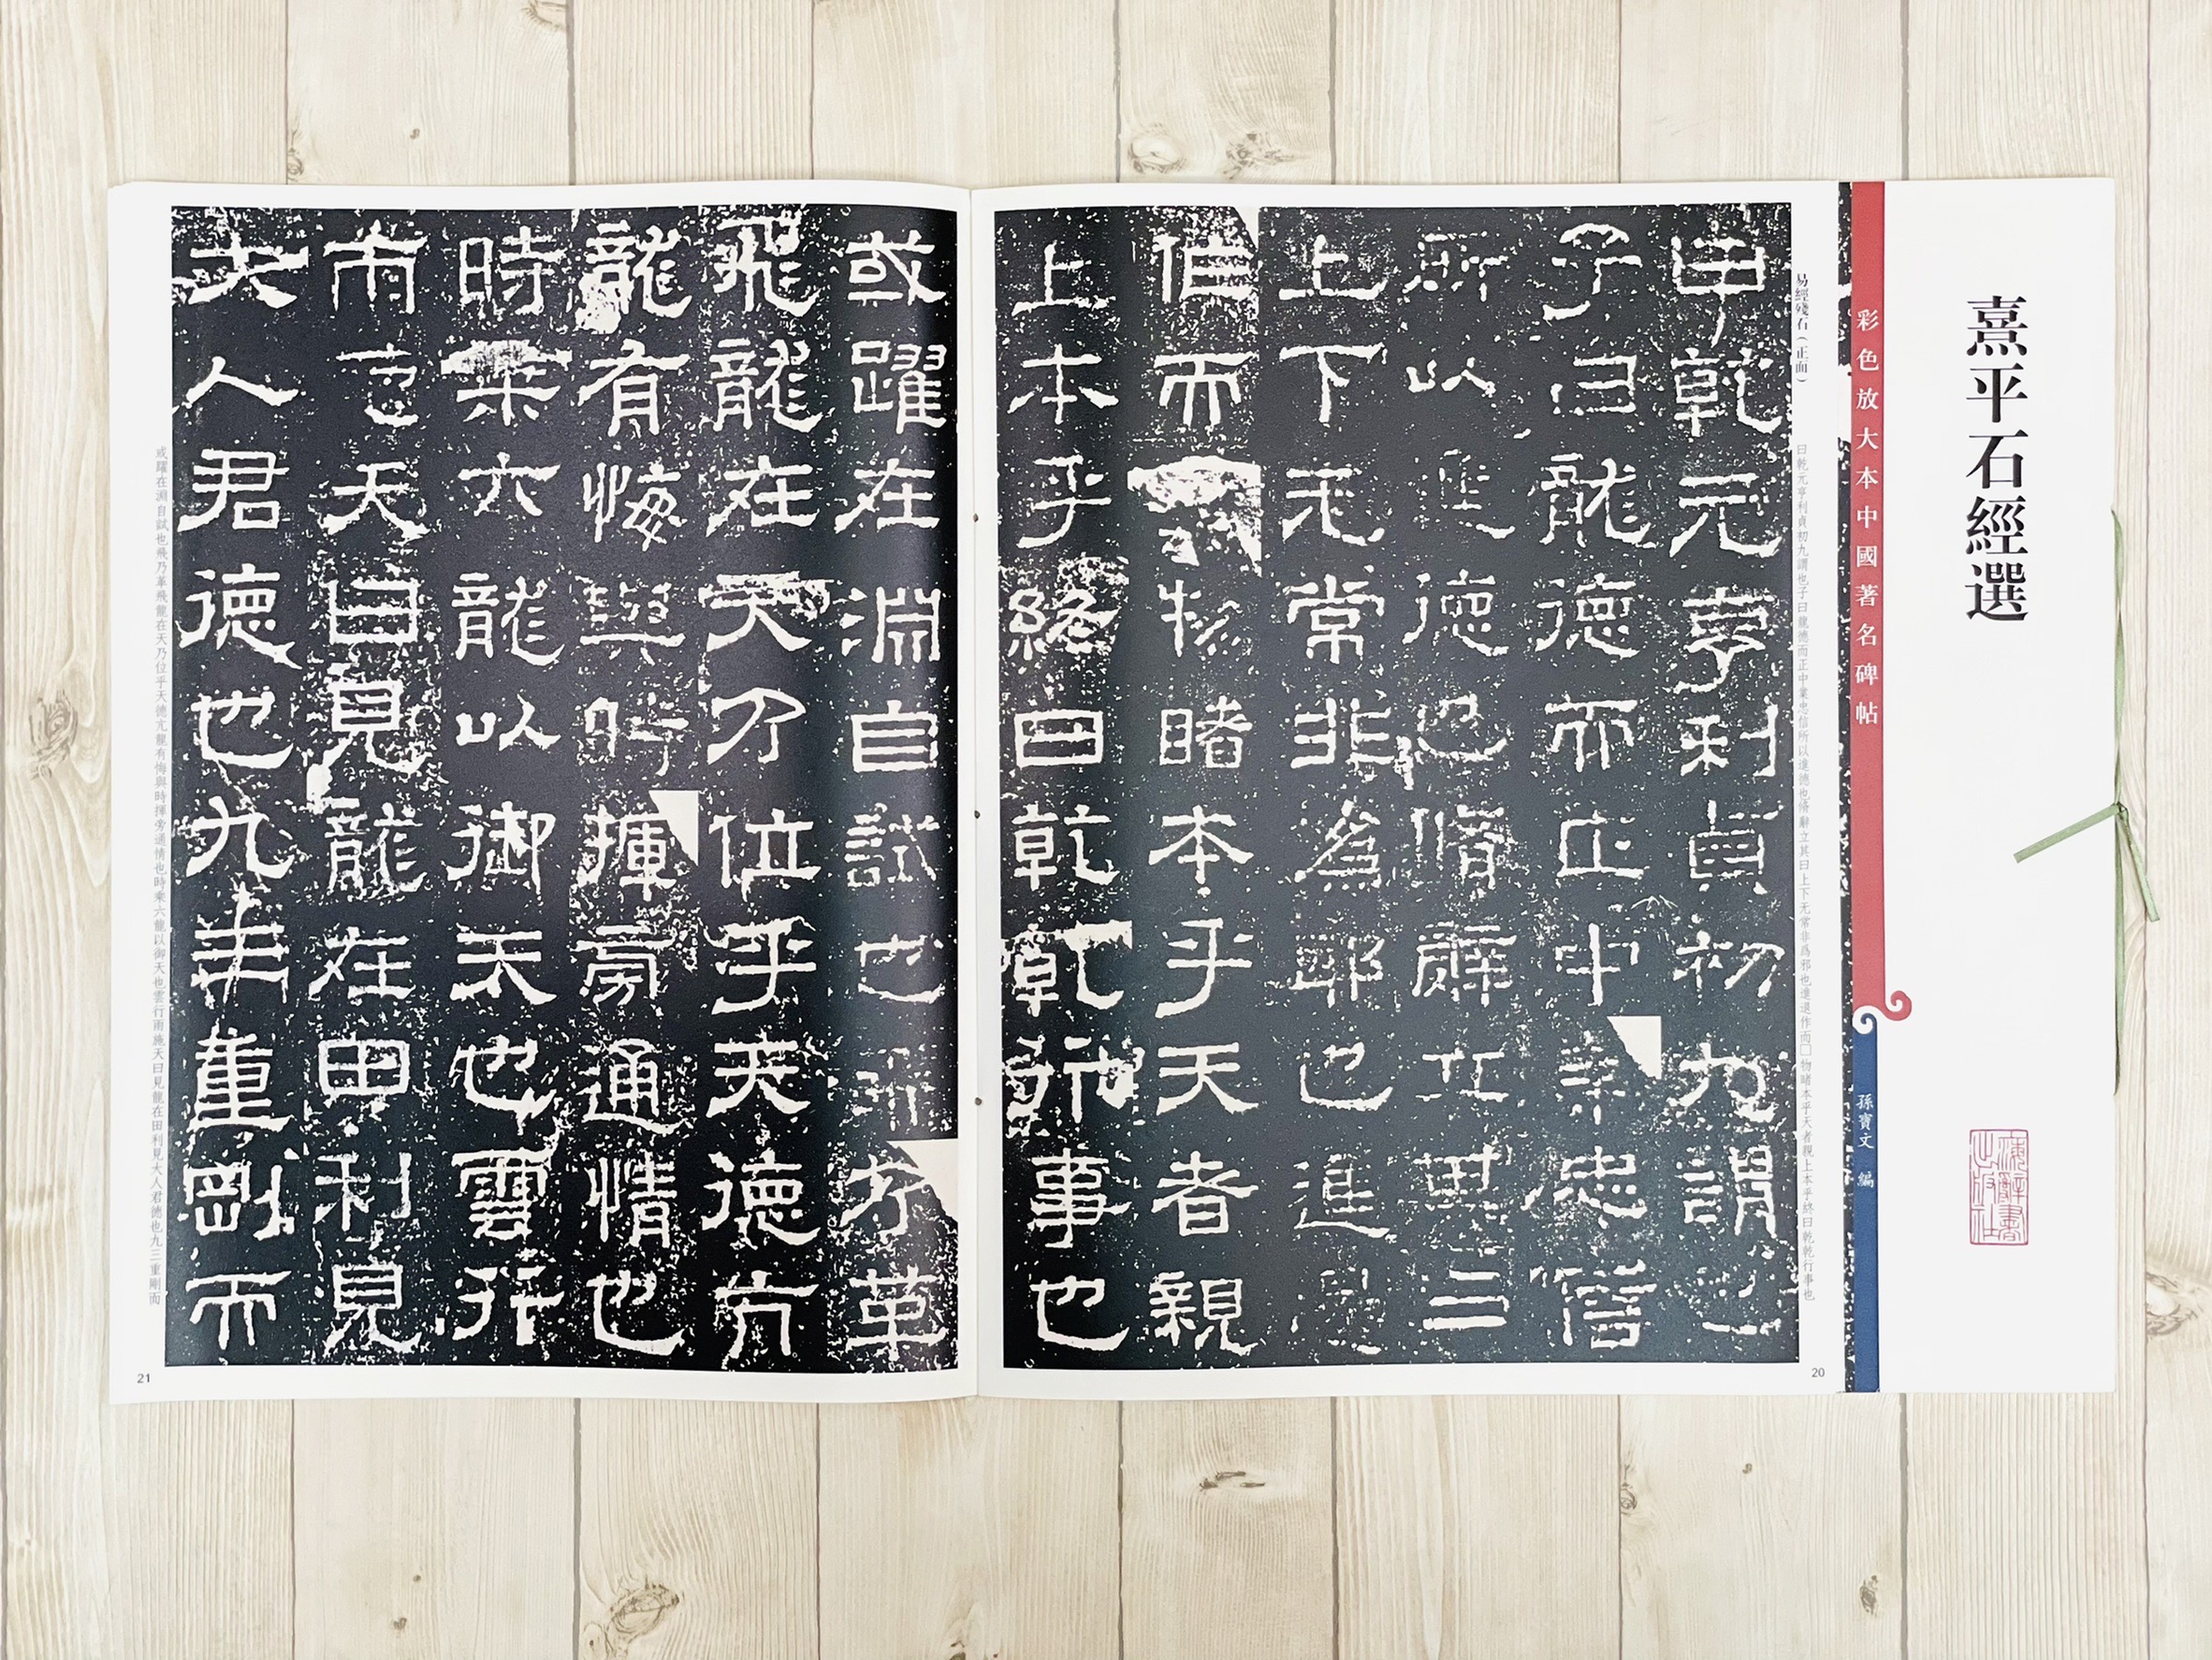 熹平石經選
彩色放大本中國著名碑帖
孫寶文 編
易經殘石（正面）
曰乾元亨利貞初九謂也子曰龍德而正中業忠信所以進德也脩辭立其曰上下无常非爲邪也進退作而□物睹本乎天者親上本乎終曰乾乾行事也
曰乾元亨利貞初九謂也
子曰龍德而正中業忠信
所以進德也脩辭立其曰
上下无常非爲邪也進退
作而物睹本乎天者親
上本乎終曰乾乾行事也
20
或躍在淵自試也飛乃革
飛龍在天乃位乎天德亢
龍有悔與時揮旁通情也
時乘六龍以御天也雲行
雨施天曰見龍在田利見
大人君德也九三重剛而
或躍在淵自試也飛乃革飛龍在天乃位乎天德亢龍有悔與時揮旁通情也時乘六龍以御天也雲行雨施天曰見龍在田利見大人君德也九三重剛而
21